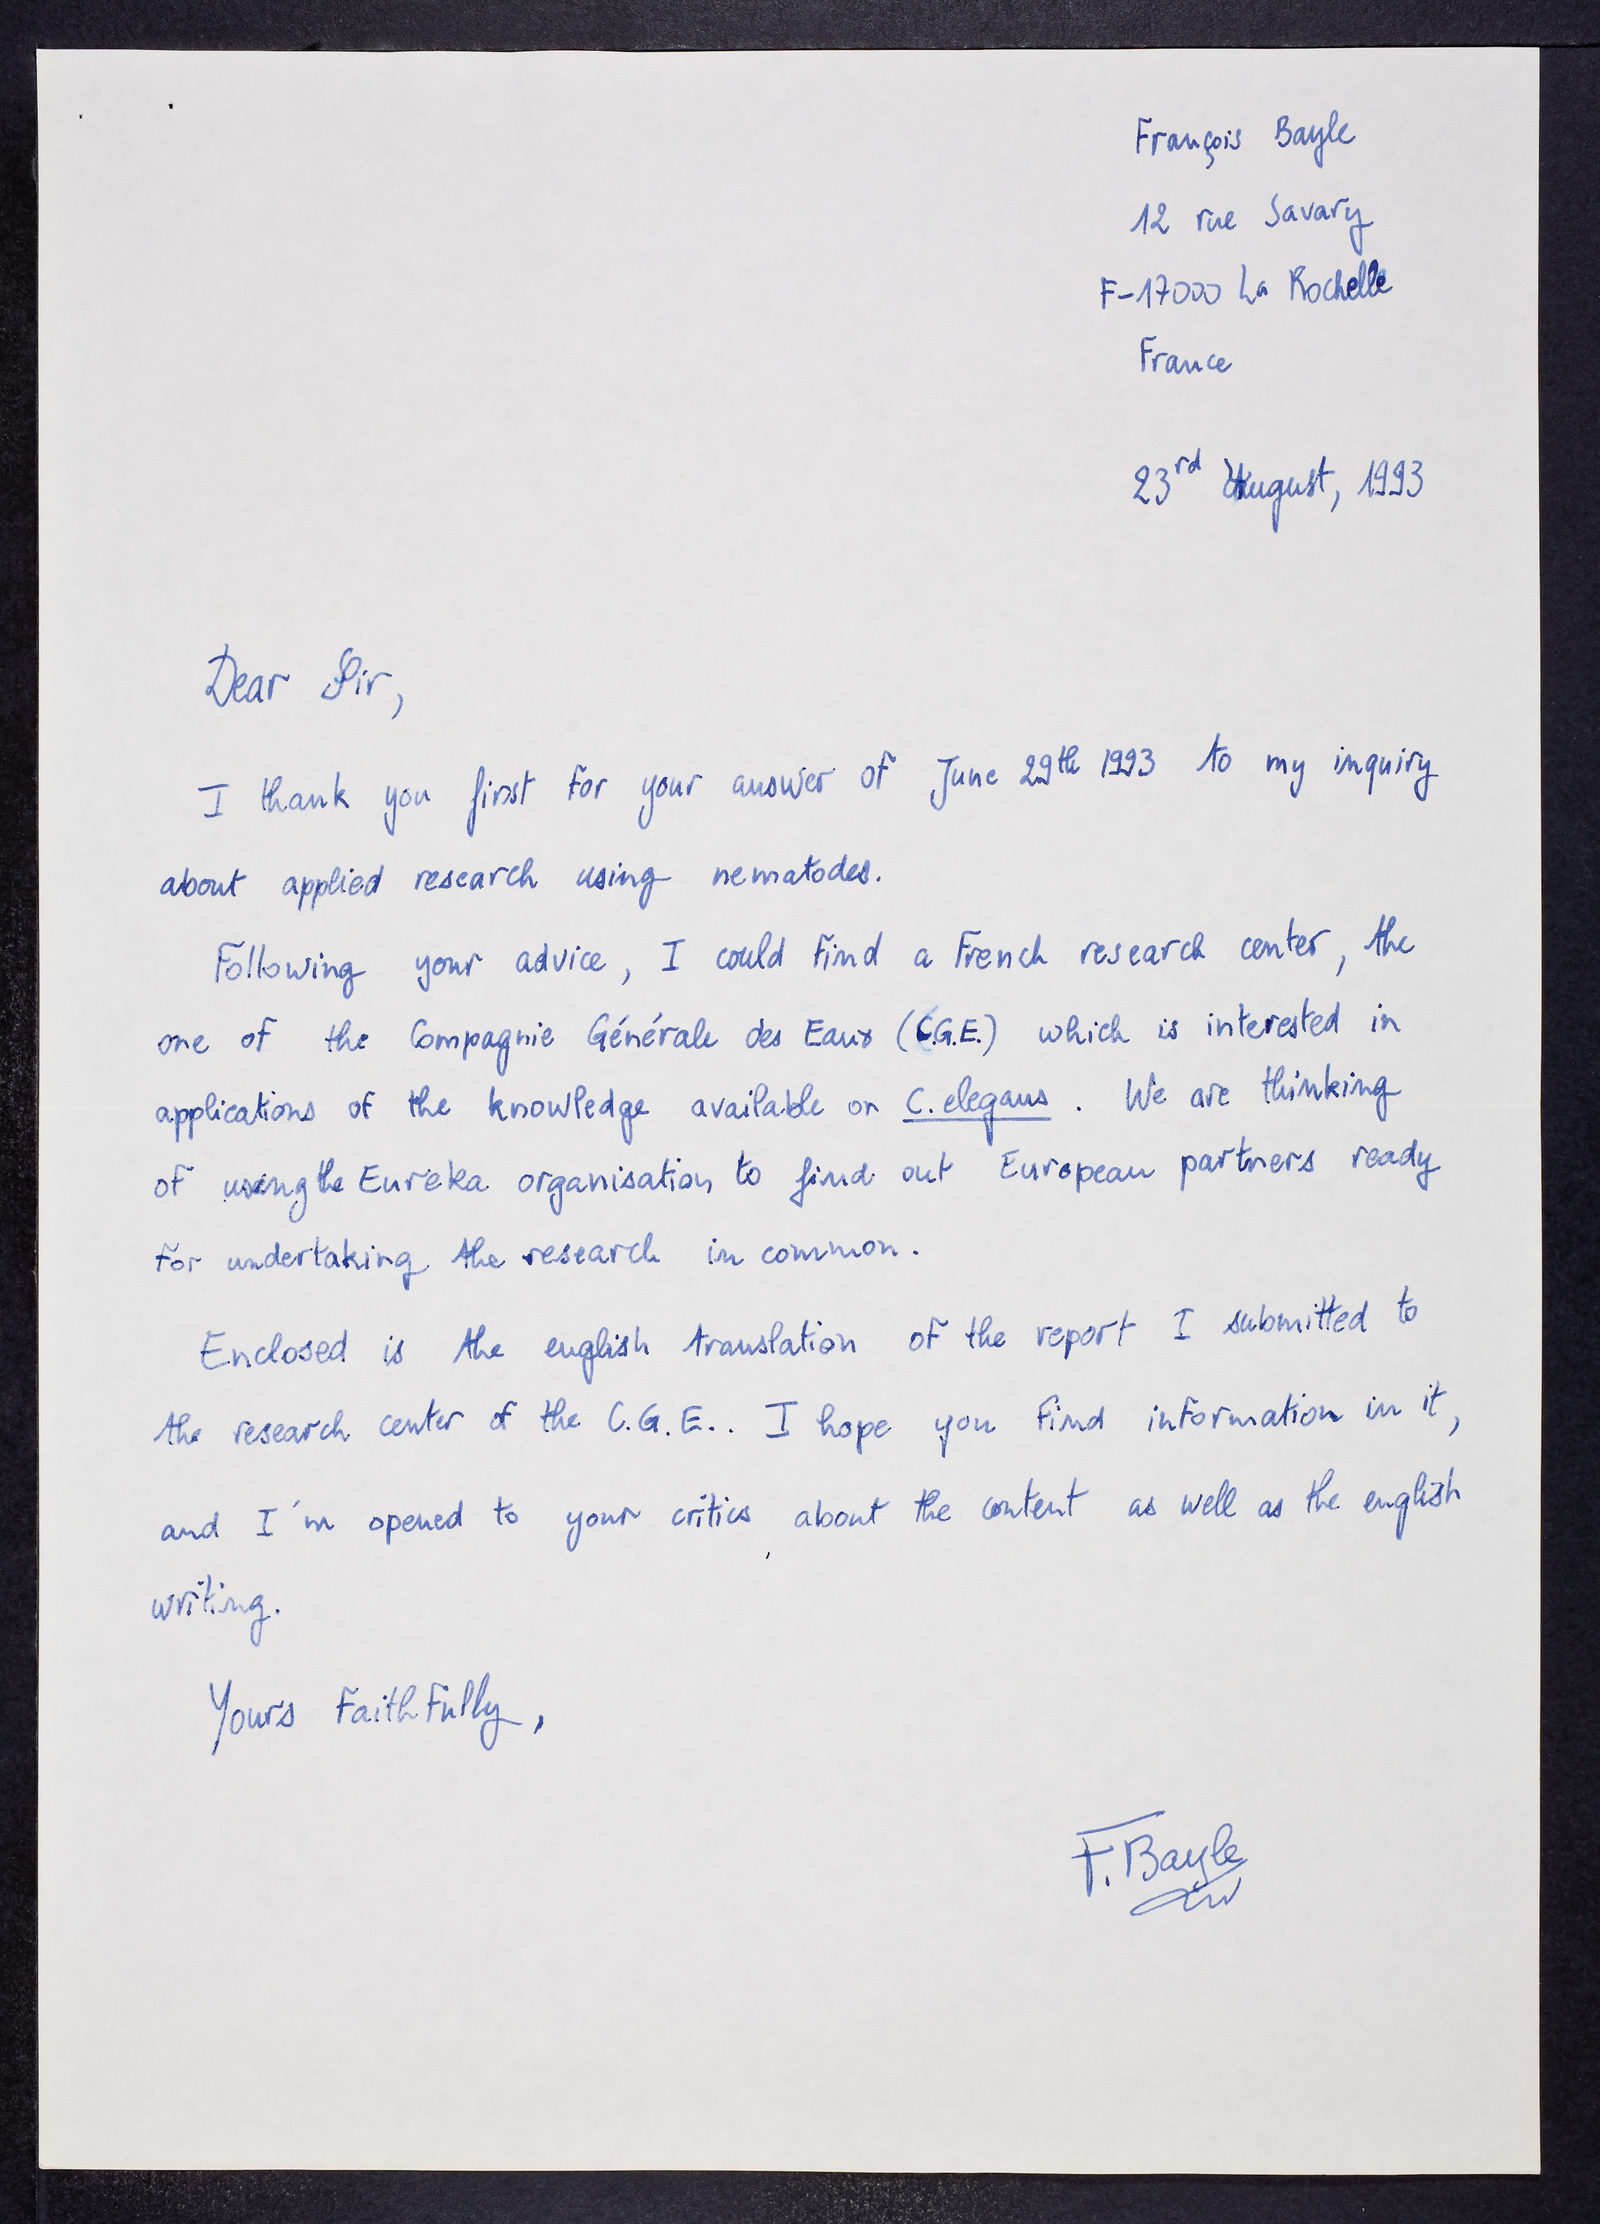 François Bayle
12 rue Savary
F-17000 La Rochelle
France
23rd August, 1993
Dear Sir,
I thank you first for your answer of June 29th 1993 to my inquiry
about applied research using nematodes.
Following your advice, I could find a French research center, the
one of the Compagnie Générale des Eaux (C.G.E.) which is interested in
applications of the knowledge available on C. elegans. We are thinking
of using the Eureka organisation to find out European partners ready
for undertaking the research in common.
Enclosed is the english translation of the report I submitted to
the research center of the C.G.E.. I hope you find information in it,
and I'm opened to your critics about the content as well as the english
writing.
Yours Faithfully,
F. Bayle